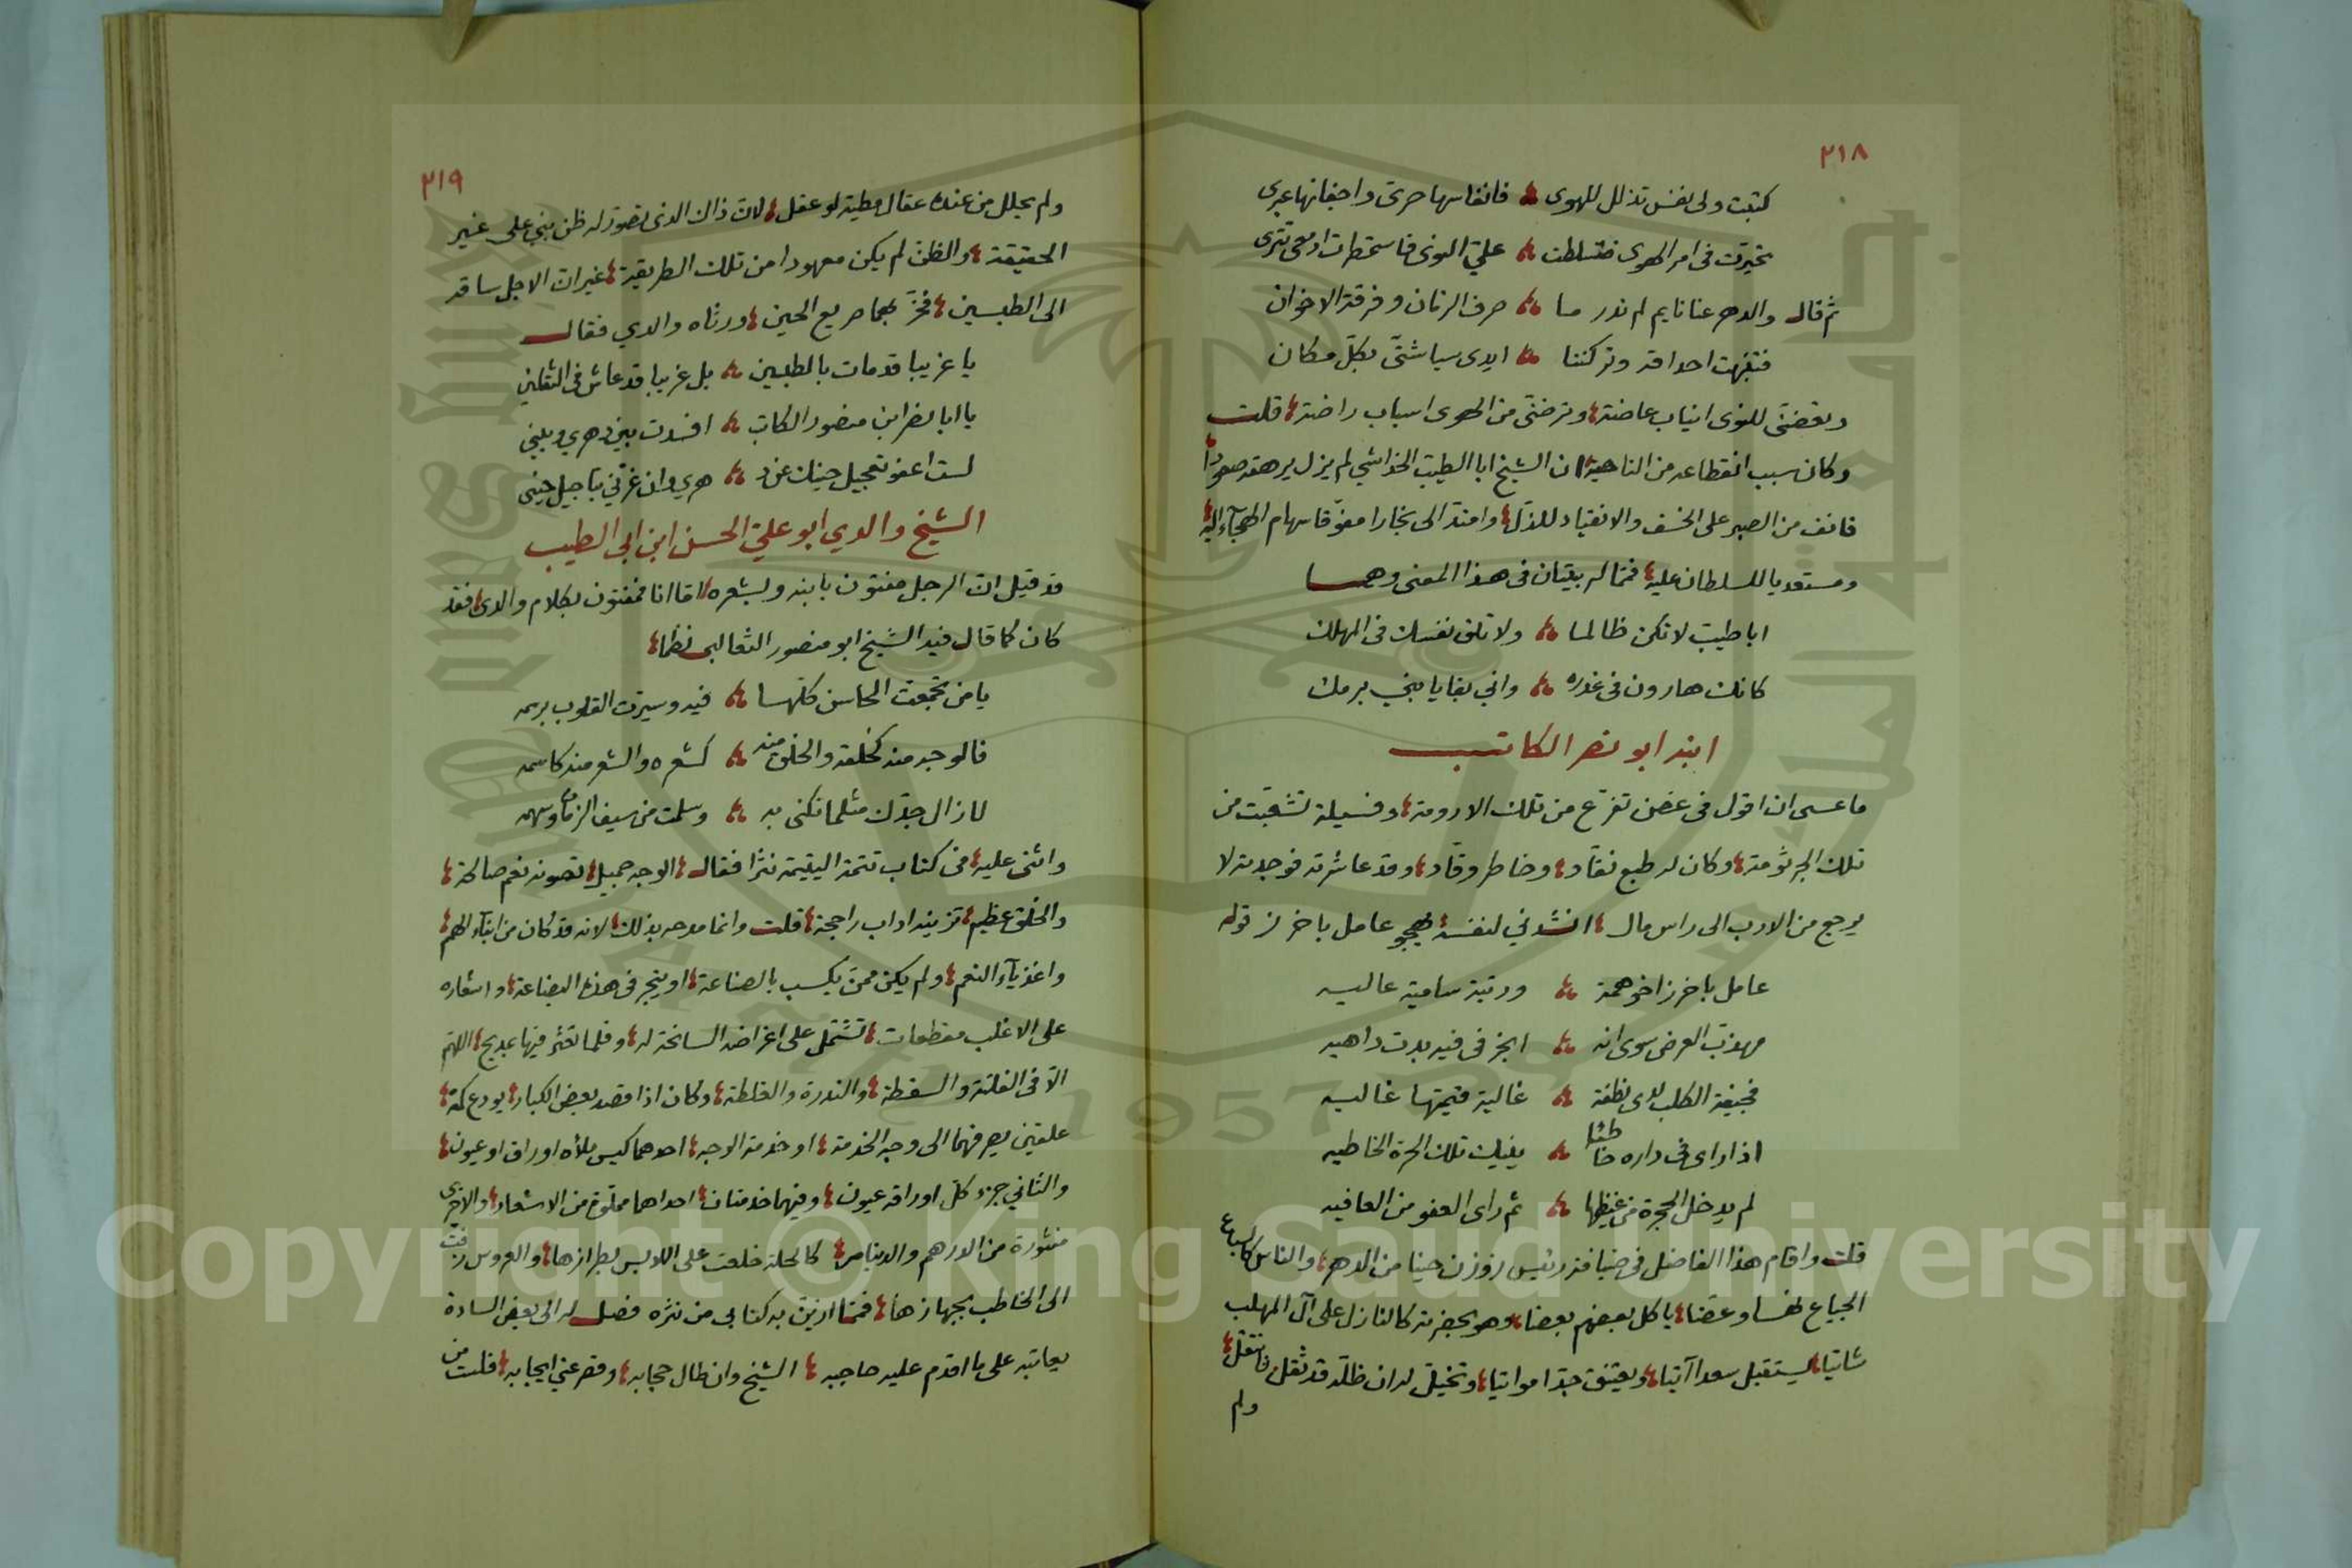 ٢١٨
كتبت ولى نفس تذلل للهوى فانفاسها حرى واجفانها عبرى
تحيرت فى امر الهوى فتسلطت على النوى فاستمطرت ادمعى تترى
ثم قال والدهر عنا نايم لم ندر ما صرف الزمان وفرقة الاخوان
فتنبهت احداقه وتركننا ايدى سبا شتى بكل مكان
وبعضتنى للنوى انياب عاضة وترضتنى من الهوى اسباب راضة قلت
وكان سبب انقطاعه من الناحية ان الشيخ ابا الطيب الخداشي لم يزل يرهقه صعودا
فانف من الصبر على الخسف والانقياد للذل وامتد الى بخارا مفوقا سهام الهجآء اليه
ومستعديا للسلطان عليه فمما له بيتان فى هذا المعنى وهما
ابا طيب لا تكن ظالما ولا تلق نفسك فى المهلك
كانك هارون فى غدره واني بقايا بني برمك
ابنه ابو نصر الكاتب
ما عسى ان اقول فى غصن تفرع من تلك الارومة وفسيلة تشعبت من
تلك الجرثومة وكان له طبع نقاد وخاطر وقاد وقد عاشرته فوجدته لا
يرجع من الادب الى راس مال انشدني لنفسه يهجو عامل باخرز قوله
عامل باخرز اخو همة ورتبة سامية عاليه
مهذب العرض سوى انه ابخر فى فيه بدت داهيه
فجيفة الكلب لدى نطفة غالية قيمتها غاليه
اذا راى فى داره خنا طنا ينيك تلك الحرة الخاطيه
لم يدخل الحجرة من غيظها ثم راى العفو من العافيه
قلت واقام هذا الفاضل فى ضيافة رئيس زوزن حينا من الدهر والناس كالسباع
الجياع نهسا وعضا ياكل بعضهم بعضا وهو بحضرته كالنازل على آل المهلب
شاتيا يستقبل سعدا آتيا ويعتنق جدا مواتيا وتخيل له ان ظله قد ثقل فانتقل
ولم
٢١٩
ولم يحلل من عنده عقال مطية لو عقل لان ذاك الذى تصور له ظن بني على غير
الحقيقة والظن لم يكن معهودا من تلك الطريقة غير ان الاجل ساقه
الى الطبسين فخر بهما صريع الحين ورثاه والدي فقال
يا غريبا قد مات بالطبسين بل غريبا قد عاش فى الثقلين
يا ابا نصر ابن منصور الكاتب افسدت بين دهري وبيني
لست اعفو تعجيل حينك عن د هري وان غرني بتاجيل حيني
الشيخ والدي ابو علي الحسن ابن ابى الطيب
قد قيل ان الرجل مفتون بابنه وبشعره اما انا فمفتون بكلام والدى فقد
كان كما قال فيه الشيخ ابو منصور الثعالبى نظما
يا من تجمعت المحاسن كلها فيه وسيرت القلوب برسمه
فالوجه منه كخلقه والخلق منه كشعره والشعر منه كاسمه
لا زال جدك مثلما تكنى به وسلمت من سيف الزمان وسهمه
واثنى عليه فى كتاب تتمة اليتيمة نثرا فقال الوجه جميل تصونه نعم صالحة
والخلق عظيم تزينه اداب راجحة قلت وانما مدحه بذلك لانه قد كان من ابنآء الهمم
واغذيآء النعم ولم يكن ممن يكسب بالصناعة او يتجر فى هذه البضاعة واشعاره
على الاغلب مقطعات تشتمل على اغراضه السانحة له وقلما تعثر فيها بمديح اللهم
الا فى الفلتة والسقطة والندرة والغلطة وكان اذا قصد بعض الكبار يودع كمه
علقين يصرفهما الى وجه الخدمة او خدمة الوجه احدهما كيس ملأه اوراق او عيون
والثاني جزء كل اوراقه عيون وفيهما خدمتان احداهما مملوة من الاشعار والاخرى
منثورة من الدرهم والدينار كالحلة خلعت على اللابس بطرازها والعروس زفت
الى الخاطب بجهازها فمما ازين به كتابي من نثره فصل له الى بعض السادة
يعاتبه على ما اقدم عليه حاجبه الشيخ وان طال حجابه وقصر عني ايجابه فلست من
Copyright © King Saud University
1957